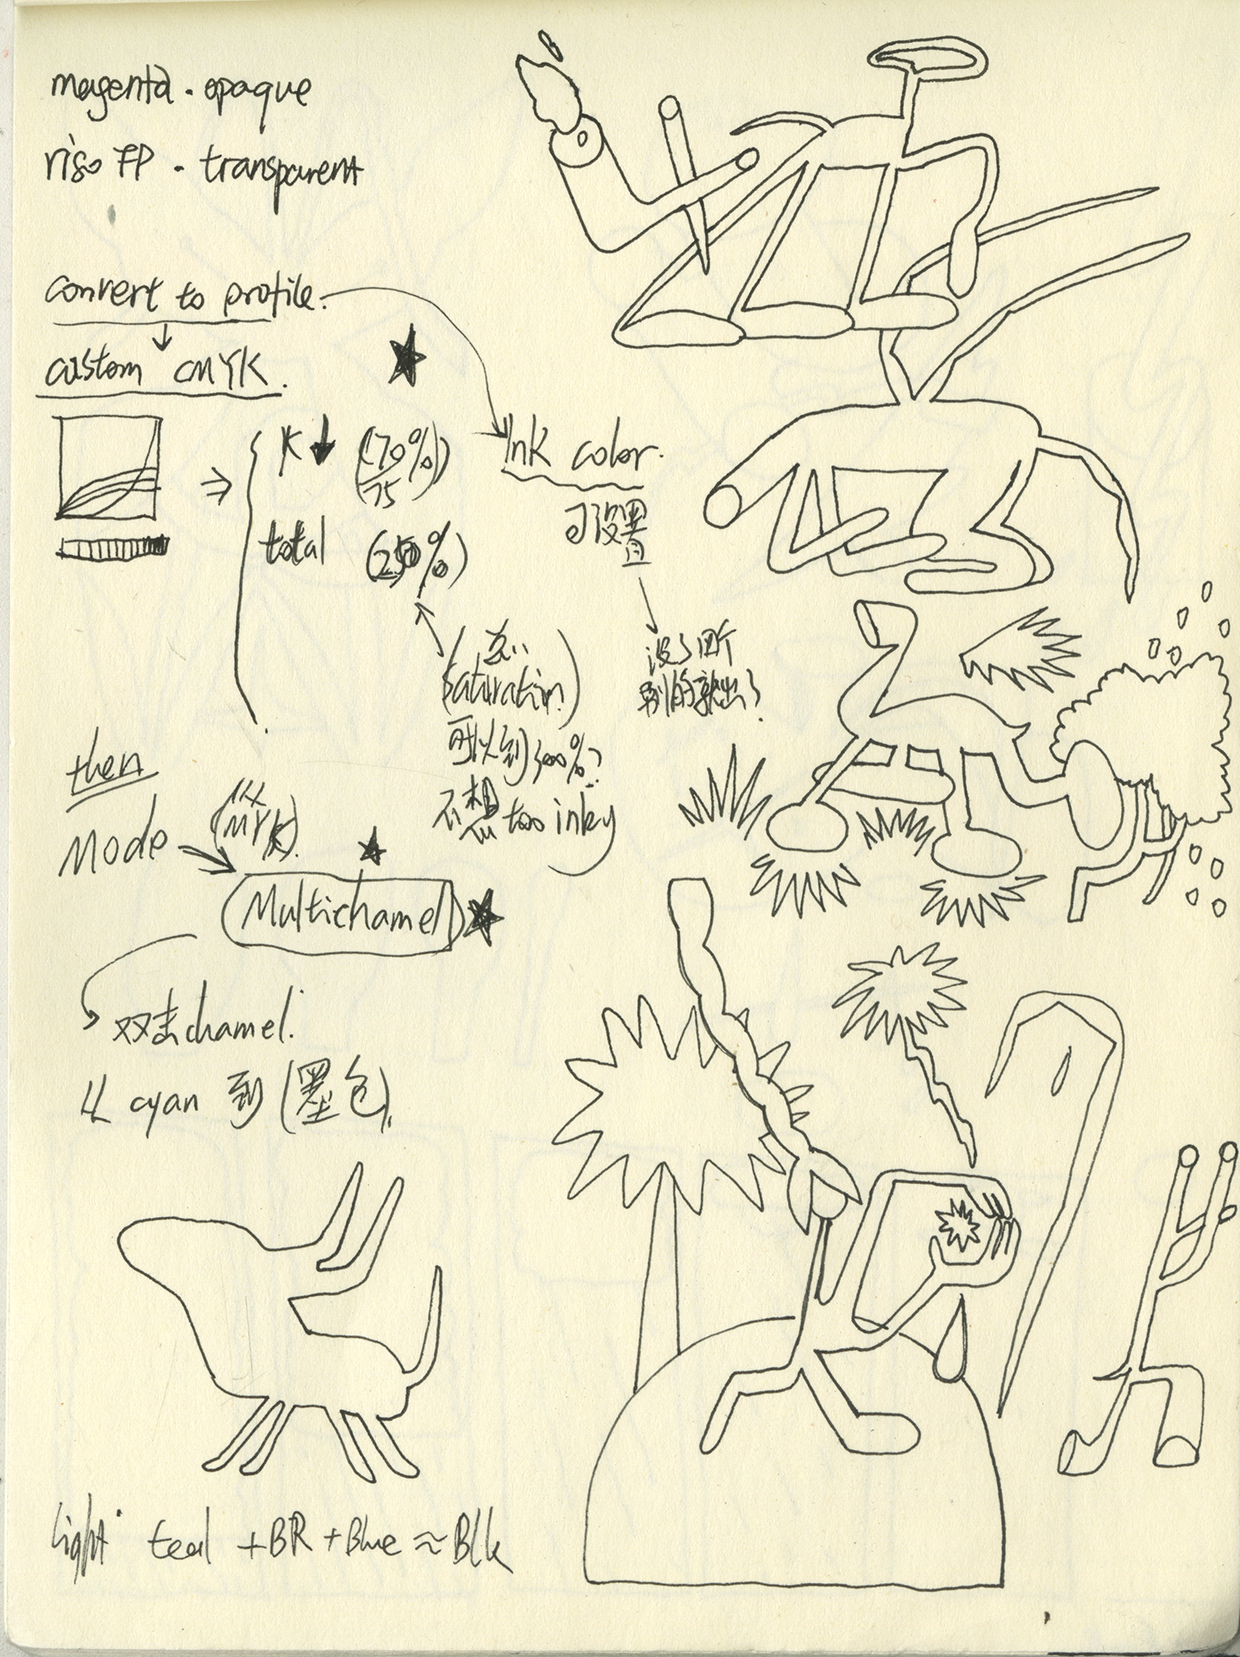 magenta - opaque
riso FP - transparent
convert to profile.
custom CMYK.
K (70%)
75
total (250%)
Ink color.
可设置
saturation
可以到300%?
不想 too inky
then
Mode
Multichannel
双击channel.
从 cyan 到 (墨色).
light teal +BR +Blue ≈ Blk